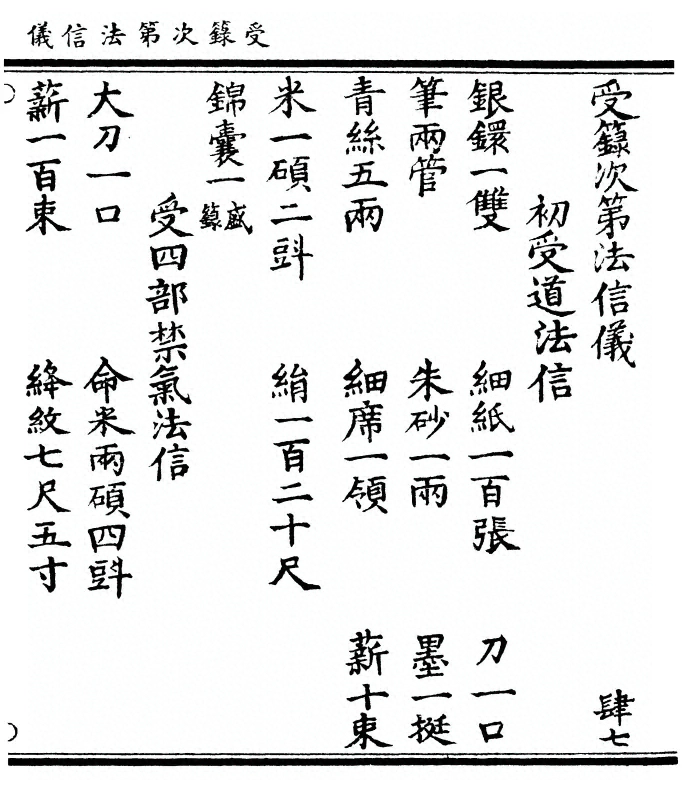 受籙次第法信儀
受籙次第法信儀 肆七
初受道法信
銀鐶一雙 細紙一百張 刀一口
筆兩管 朱砂一兩 墨一挺
青絲五兩 細席一領 薪十束
米一碩二㪷 絹一百二十尺
錦囊一盛籙
受四部禁氣法信
大刀一口 命米兩碩四㪷
薪一百束 絳紋七尺五寸